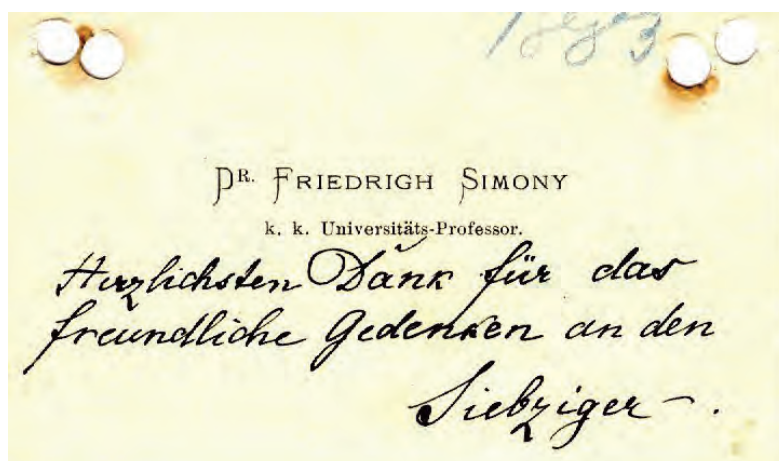 DR. FRIEDRIGH SIMONY
k. k. Universitäts-Professor.
Herzlichsten Dank für das
freundliche Gedenken an den
Siebziger.